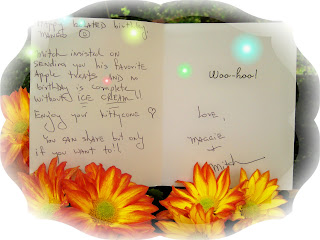 Happy BELATED birthday
MANGO
Mitch insisted on
sending you his favorite
Apple treats AND no
birthday is complete
without ICE CREAM!!
Enjoy your kittycone
You can share but only
if you want to!!
Woo-hoo!
Love,
Maggie
+
Mitch